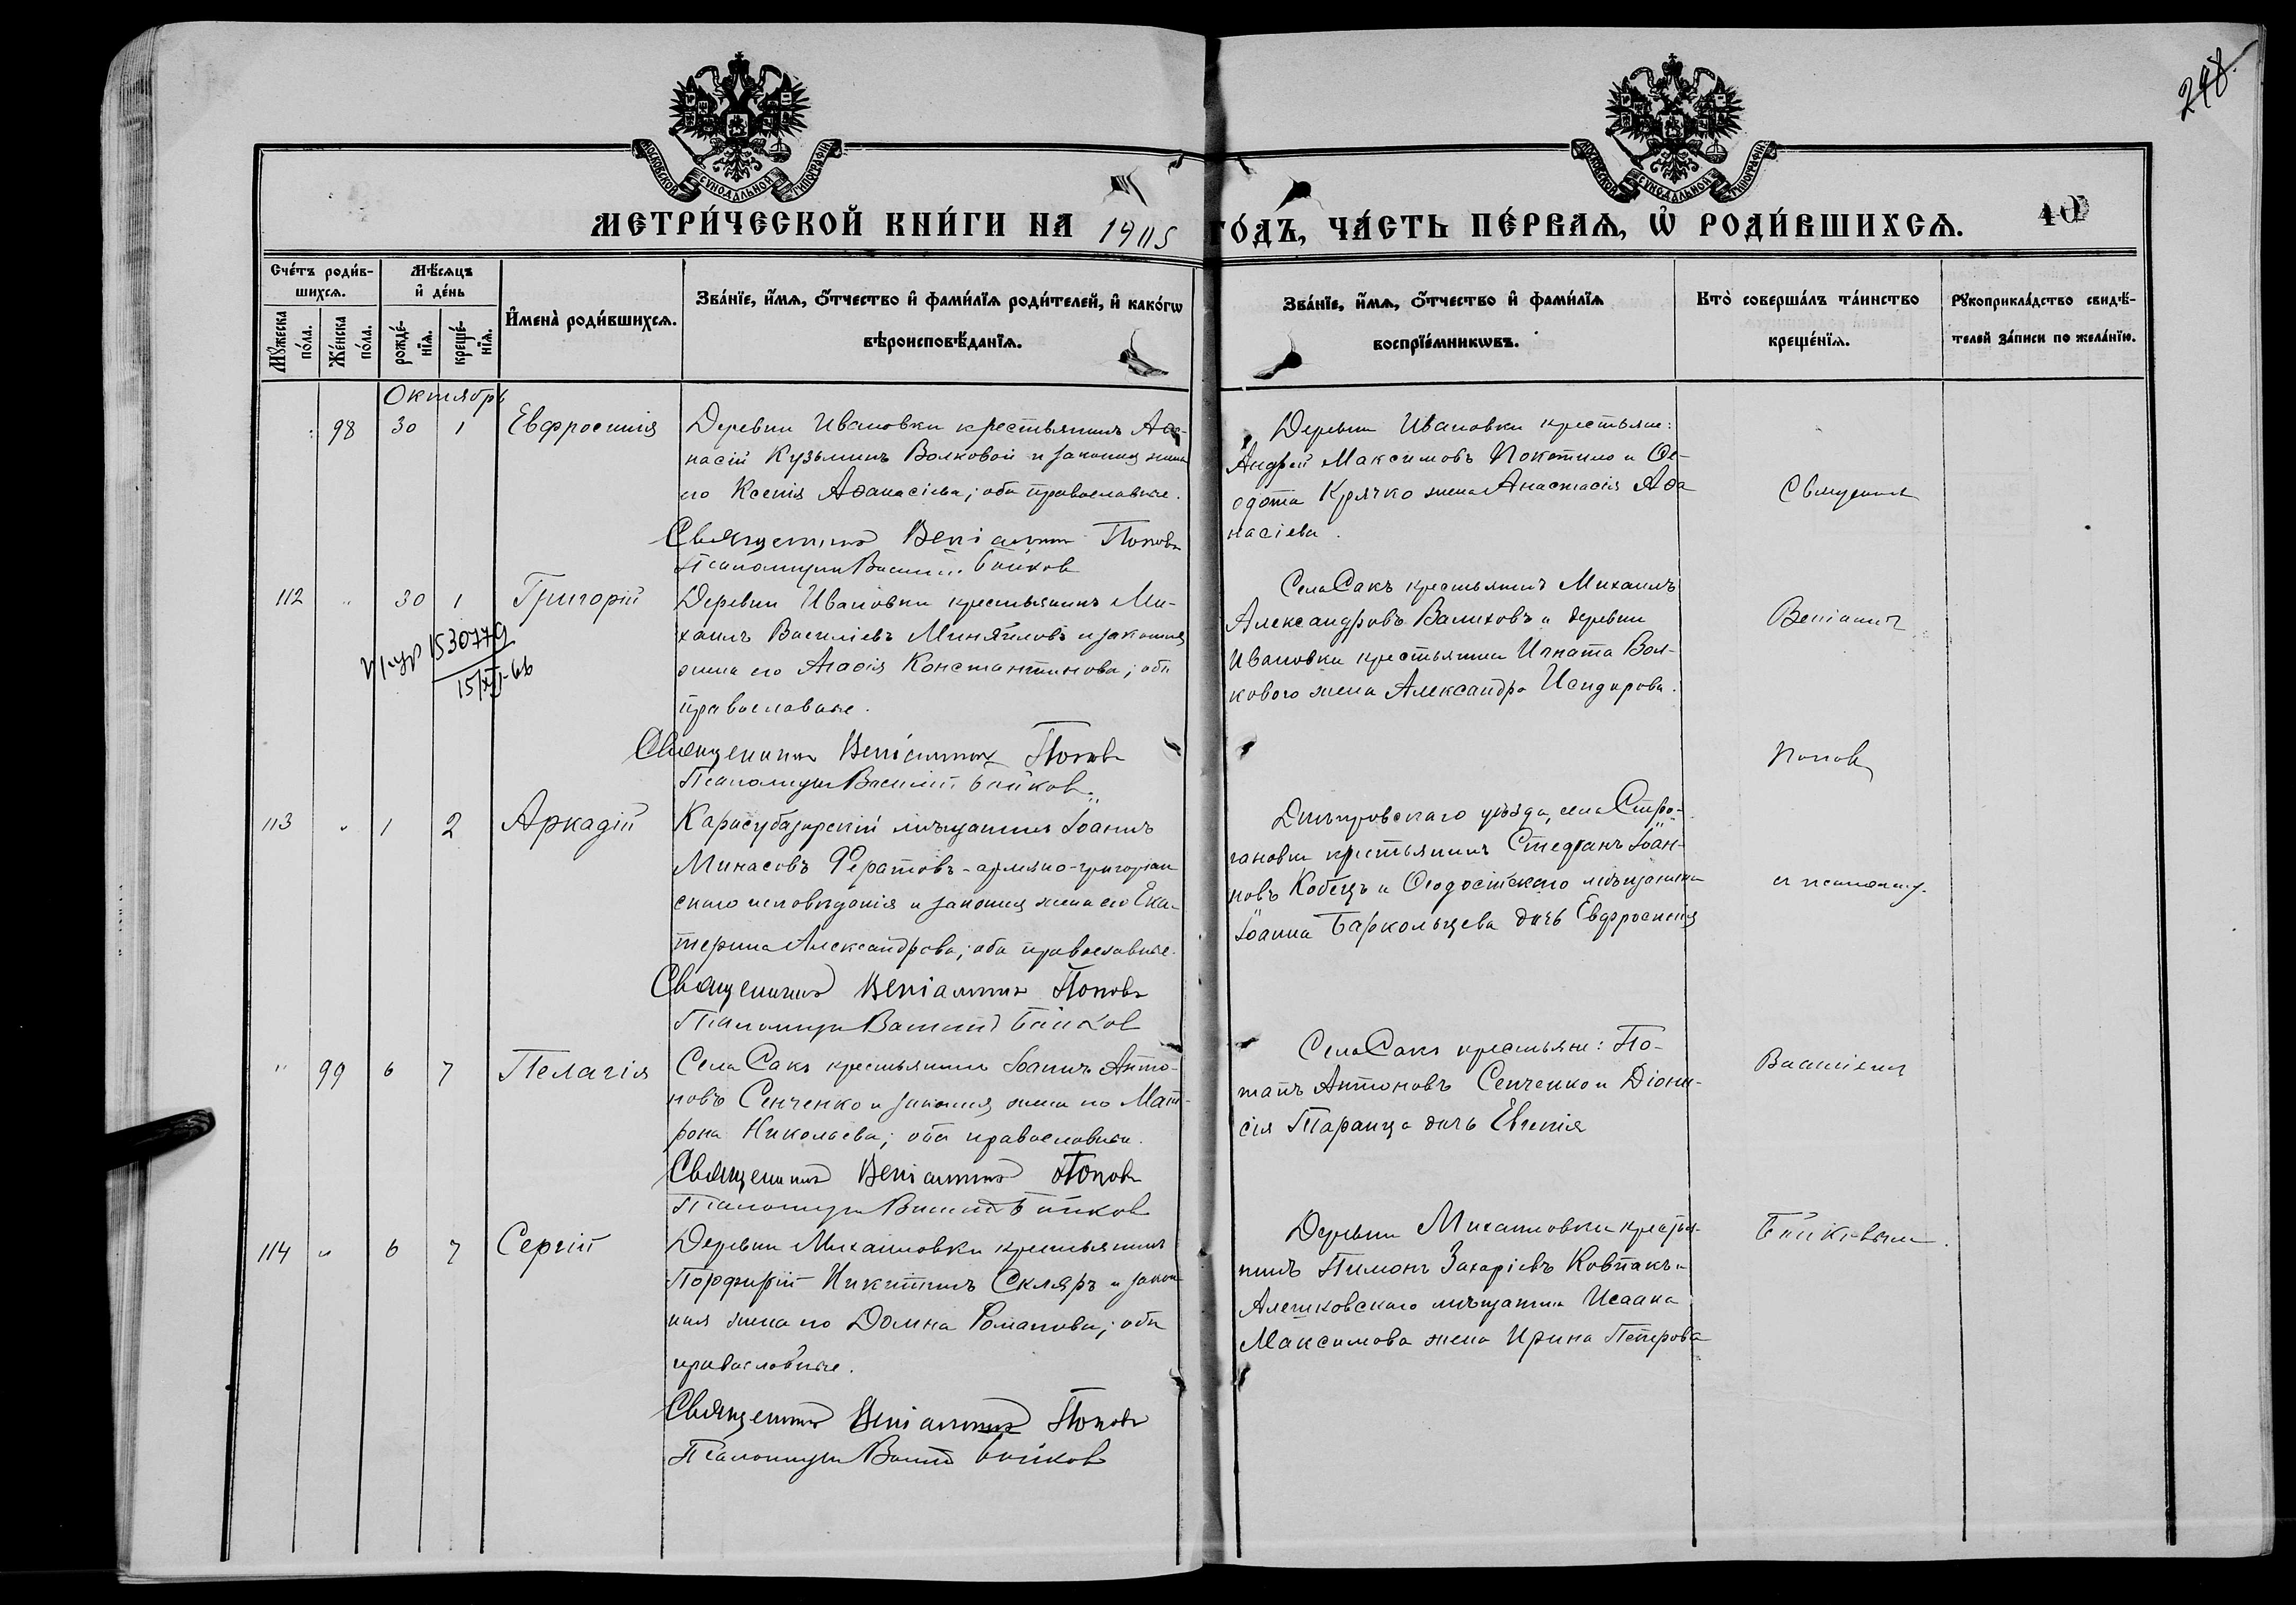 248.
МОСКОВСКОЙ СѴНОДАЛЬНОЙ ТИПОГРАФІИ
МОСКОВСКОЙ СѴНОДАЛЬНОЙ ТИПОГРАФІИ
МЕТРИ́ЧЕСКОЙ КНИ́ГИ НА 1905 ГО́ДЪ, ЧА́СТЬ ПЕ́РВАѦ, Ѡ҆ РОДИ́ВШИХСѦ.
40
Сче́тъ роди́в-
шихсѧ.
Мꙋ́жеска по́ла.
Же́нска по́ла.
Мѣ́сѧцъ
и҆ де́нь
рожде́-
нїѧ.
креще́-
нїѧ.
И҆мена̀ роди́вшихсѧ.
Зва́нїе, и҆́мѧ, ѻ҆́тчество и҆ фами́лїѧ роди́телей, и҆ како́гѡ
вѣроисповѣ́данїѧ.
Зва́нїе, и҆́мѧ, ѻ҆́тчество и҆ фами́лїѧ
воспрїе́мникѡвъ.
Кто̀ соверша́лъ та́инство
креще́нїѧ.
Рꙋкоприкла́дство свидѣ́-
телей за́писи по жела́нїю.
Октябрь
98 30 1 Евфросинія
Деревни Ивановки крестьянинъ Аѳа-
насій Кузьминъ Волковой и законная жена
его Ксенія Аѳанасіева; оба православные.
Священникъ Веніаминъ Поповъ
Псаломщикъ Василій Бойков
Деревни Ивановки крестьяне:
Андрей Максимовъ Покотило и Ѳе-
одота Крячко жена Анастасія Аѳа
насіева.
Священник
112 " 30 1 Григорій
1530779
15/XI-66
Деревни Ивановки крестьянинъ Ми-
хаилъ Василіевъ Миняйловъ и законная
жена его Агаѳія Константинова; оба
православные.
Священникъ Веніаминъ Поповъ
Псаломщикъ Василій Бойков.
Села Сакъ крестьянинъ Михаилъ
Александровъ Валиховъ и деревни
Ивановки крестьянина Игната Вол-
кового жена Александра Исидорова.
Веніамин
Попов
113 " 1 2 Аркадій
Карасубазарскій мѣщанинъ Іоаннъ
Минасовъ Фератовъ - армяно-григоріан
скаго исповѣданія и законная жена его Ека-
терина Александрова; оба православные.
Священникъ Веніаминъ Поповъ
Псаломщикъ Василій Бойков
Днѣпровскаго уѣзда, села Стро-
гановки крестьянинъ Стефанъ Іоан-
новъ Кобецъ и Ѳеодосійскаго мѣщанина
Іоанна Баркольцева дочь Евфросинія
и псаломщ.
" 99 6 7 Пелагія
Села Сакъ крестьянинъ Іоаннъ Анто-
новъ Сенченко и законная жена его Мат-
рона Николаева; оба православные.
Священникъ Веніаминъ Поповъ
Псаломщикъ Василій Бойков
Села Сакъ крестьяне: По-
тапъ Антоновъ Сенченко и Діони-
сія Таранца дочь Евгенія
Василіем
114 " 6 7 Сергій
Деревни Михайловки крестьянинъ
Порфирій Никитинъ Скляръ и закон-
ная жена его Домна Романова; оба
православные.
Священникъ Веніаминъ Поповъ
Псаломщикъ Василій Бойков
Деревни Михайловки крестья-
нинъ Пимонъ Захаріевъ Ковпакъ и
Алешковскаго мѣщанина Исаака
Максимова жена Ирина Петрова
Бойковым.